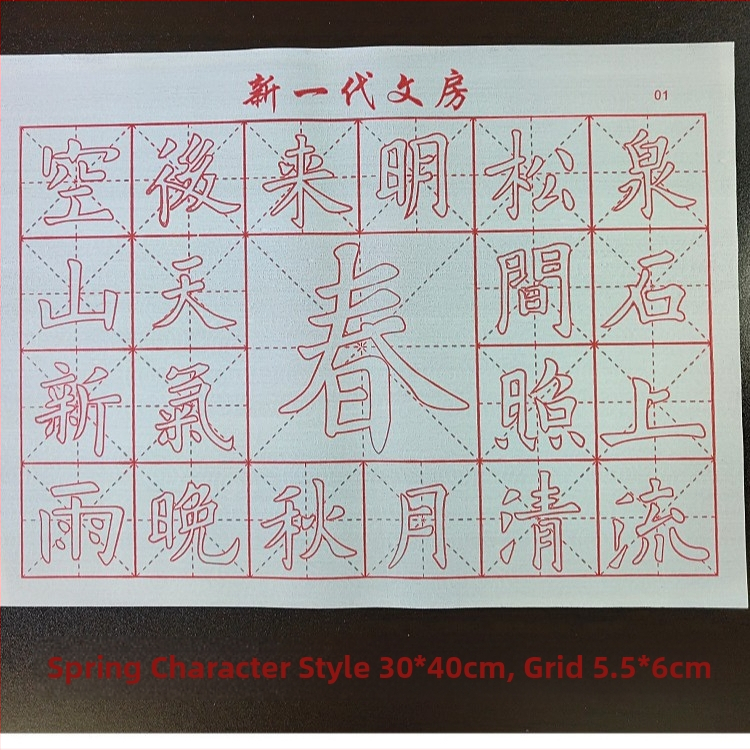 新一代文房
01
空 後 来 明 松 泉
山 天 春 間 石
新 氣 照 上
雨 晚 秋 月 清 流
Spring Character Style 30*40cm, Grid 5.5*6cm